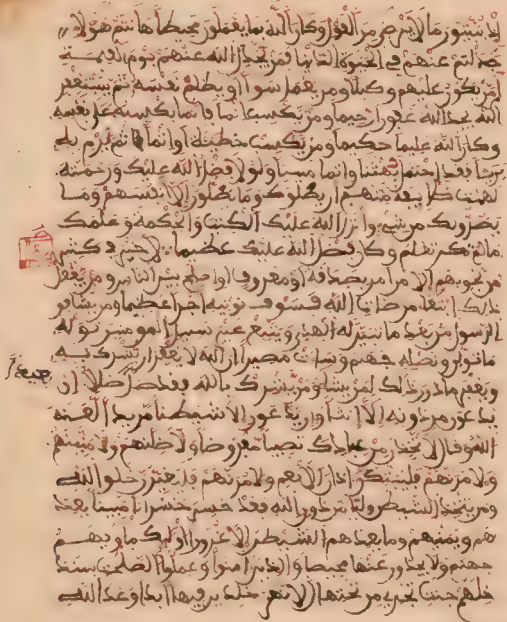 إذ يبيتون ما لا يرضى من القول وكان الله بما يعملون محيطا هانتم هؤلاء
جدلتم عنهم في الحيوة الدنيا فمن يجدل الله عنهم يوم القيمة
أم من يكون عليهم وكيلا ومن يعمل سوءا أو يظلم نفسه ثم يستغفر
الله يجد الله غفورا رحيما ومن يكسب إثما فإنما يكسبه على نفسه
وكان الله عليما حكيما ومن يكسب خطيئة أو إثما ثم يرم به
بريئا فقد احتمل بهتنا وإثما مبينا ولولا فضل الله عليك ورحمته
لهمت طائفة منهم أن يضلوك وما يضلون إلا أنفسهم وما
يضرونك من شيء وأنزل الله عليك الكتب والحكمة وعلمك
ما لم تكن تعلم وكان فضل الله عليك عظيما لا خير في كثير
من نجويهم إلا من أمر بصدقة أو معروف أو إصلح بين الناس ومن يفعل
ذلك ابتغاء مرضات الله فسوف نؤتيه أجرا عظيما ومن يشاقق
الرسول من بعد ما تبين له الهدى ويتبع غير سبيل المؤمنين نوله
ما تولى ونصله جهنم وساءت مصيرا إن الله لا يغفر أن يشرك به
ويغفر ما دون ذلك لمن يشاء ومن يشرك بالله فقد ضل ضللا إن
بعيدا
يدعون من دونه إلا إنثا وإن يدعون إلا شيطنا مريدا لعنه
الله وقال لأتخذن من عبادك نصيبا مفروضا ولأضلنهم ولأمنينهم
ولأمرنهم فليبتكن ءاذان الأنعم ولأمرنهم فليغيرن خلق الله
ومن يتخذ الشيطن وليا من دون الله فقد خسر خسرانا مبينا يعد
هم ويمنيهم وما يعدهم الشيطن إلا غرورا أولئك مأويهم
جهنم ولا يجدون عنها محيصا والذين ءامنوا وعملوا الصلحت سند
خلهم جنت تجري من تحتها الأنهر خلدين فيها أبدا وعد الله